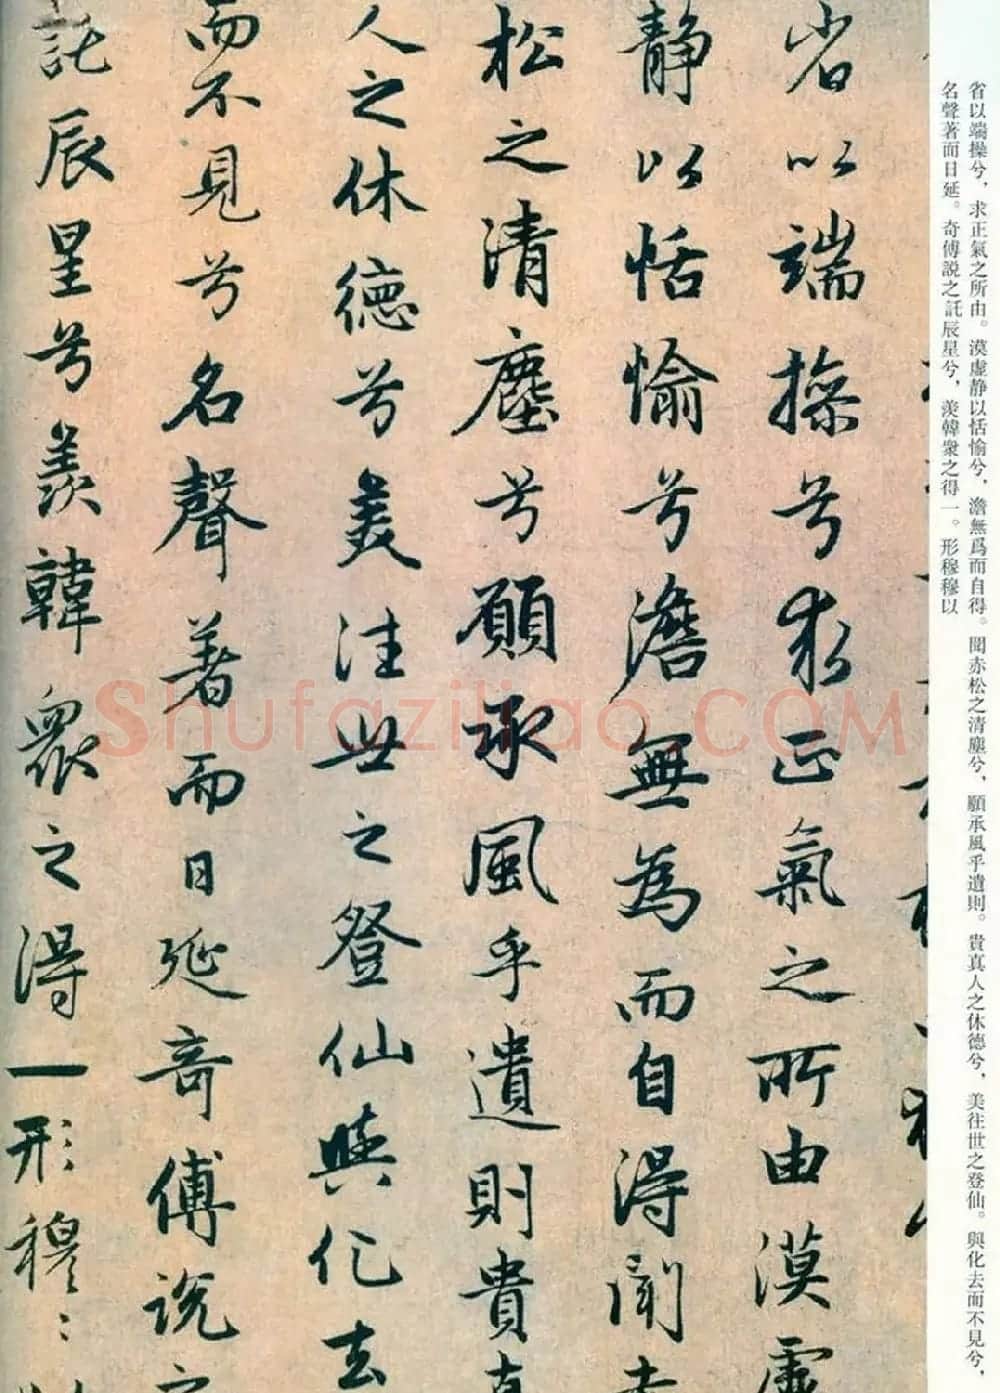 省以端操兮，求正氣之所由。漠虛静以恬愉兮，澹無爲而自得。聞赤松之清塵兮，願承風乎遺則。貴真人之休德兮，美往世之登仙。與化去而不見兮，
名聲著而日延。奇傅説之託辰星兮，羨韓衆之得一。形穆穆以
省以端操兮求正氣之所由漠虛
静以恬愉兮澹無為而自得聞赤
松之清塵兮願承風乎遺則貴真
人之休德兮美往世之登仙與化去
而不見兮名聲著而日延奇傅説之
託辰星兮羨韓衆之得一形穆〻
Shufaziliao.COM